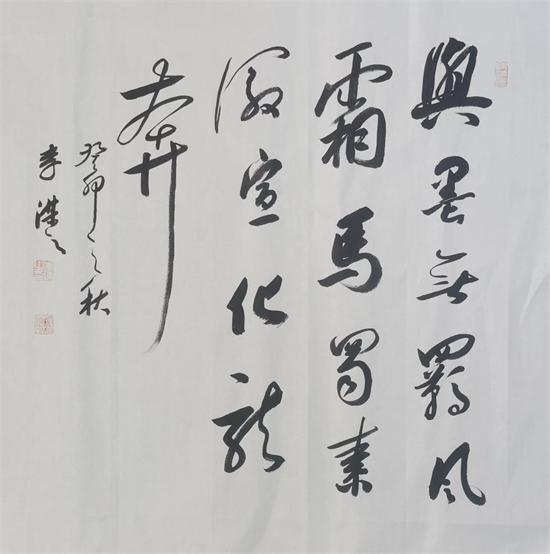 與墨無羈風
霜馬蜀素
宣化龍
奔
癸卯之秋
李